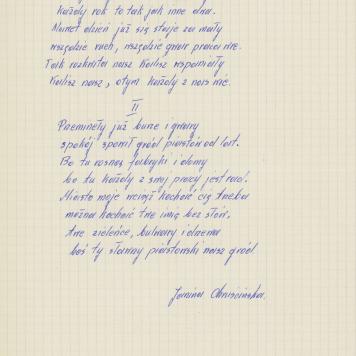 Każdy rok to tak jak inne dna.
Nawet dzień już się staje za mały
wszędzie ruch, wszędzie gwar praca wre.
Tak rozkwita nasz Kalisz wspaniały
Kalisz nasz, o tym każdy z nas wie.
II
Przeminęły już burze i gwary
spokój spowił gród piastów od lat.
Bo tu rosną fabryki i domy
bo tu każdy z swej pracy jest rad.
Miasto moje wciąż kochać cię trzeba
można kochać twe imię bez słów,
twe zieleńce, bulwary i drzewa
boś ty sławny piastowski nasz gród.
Janina